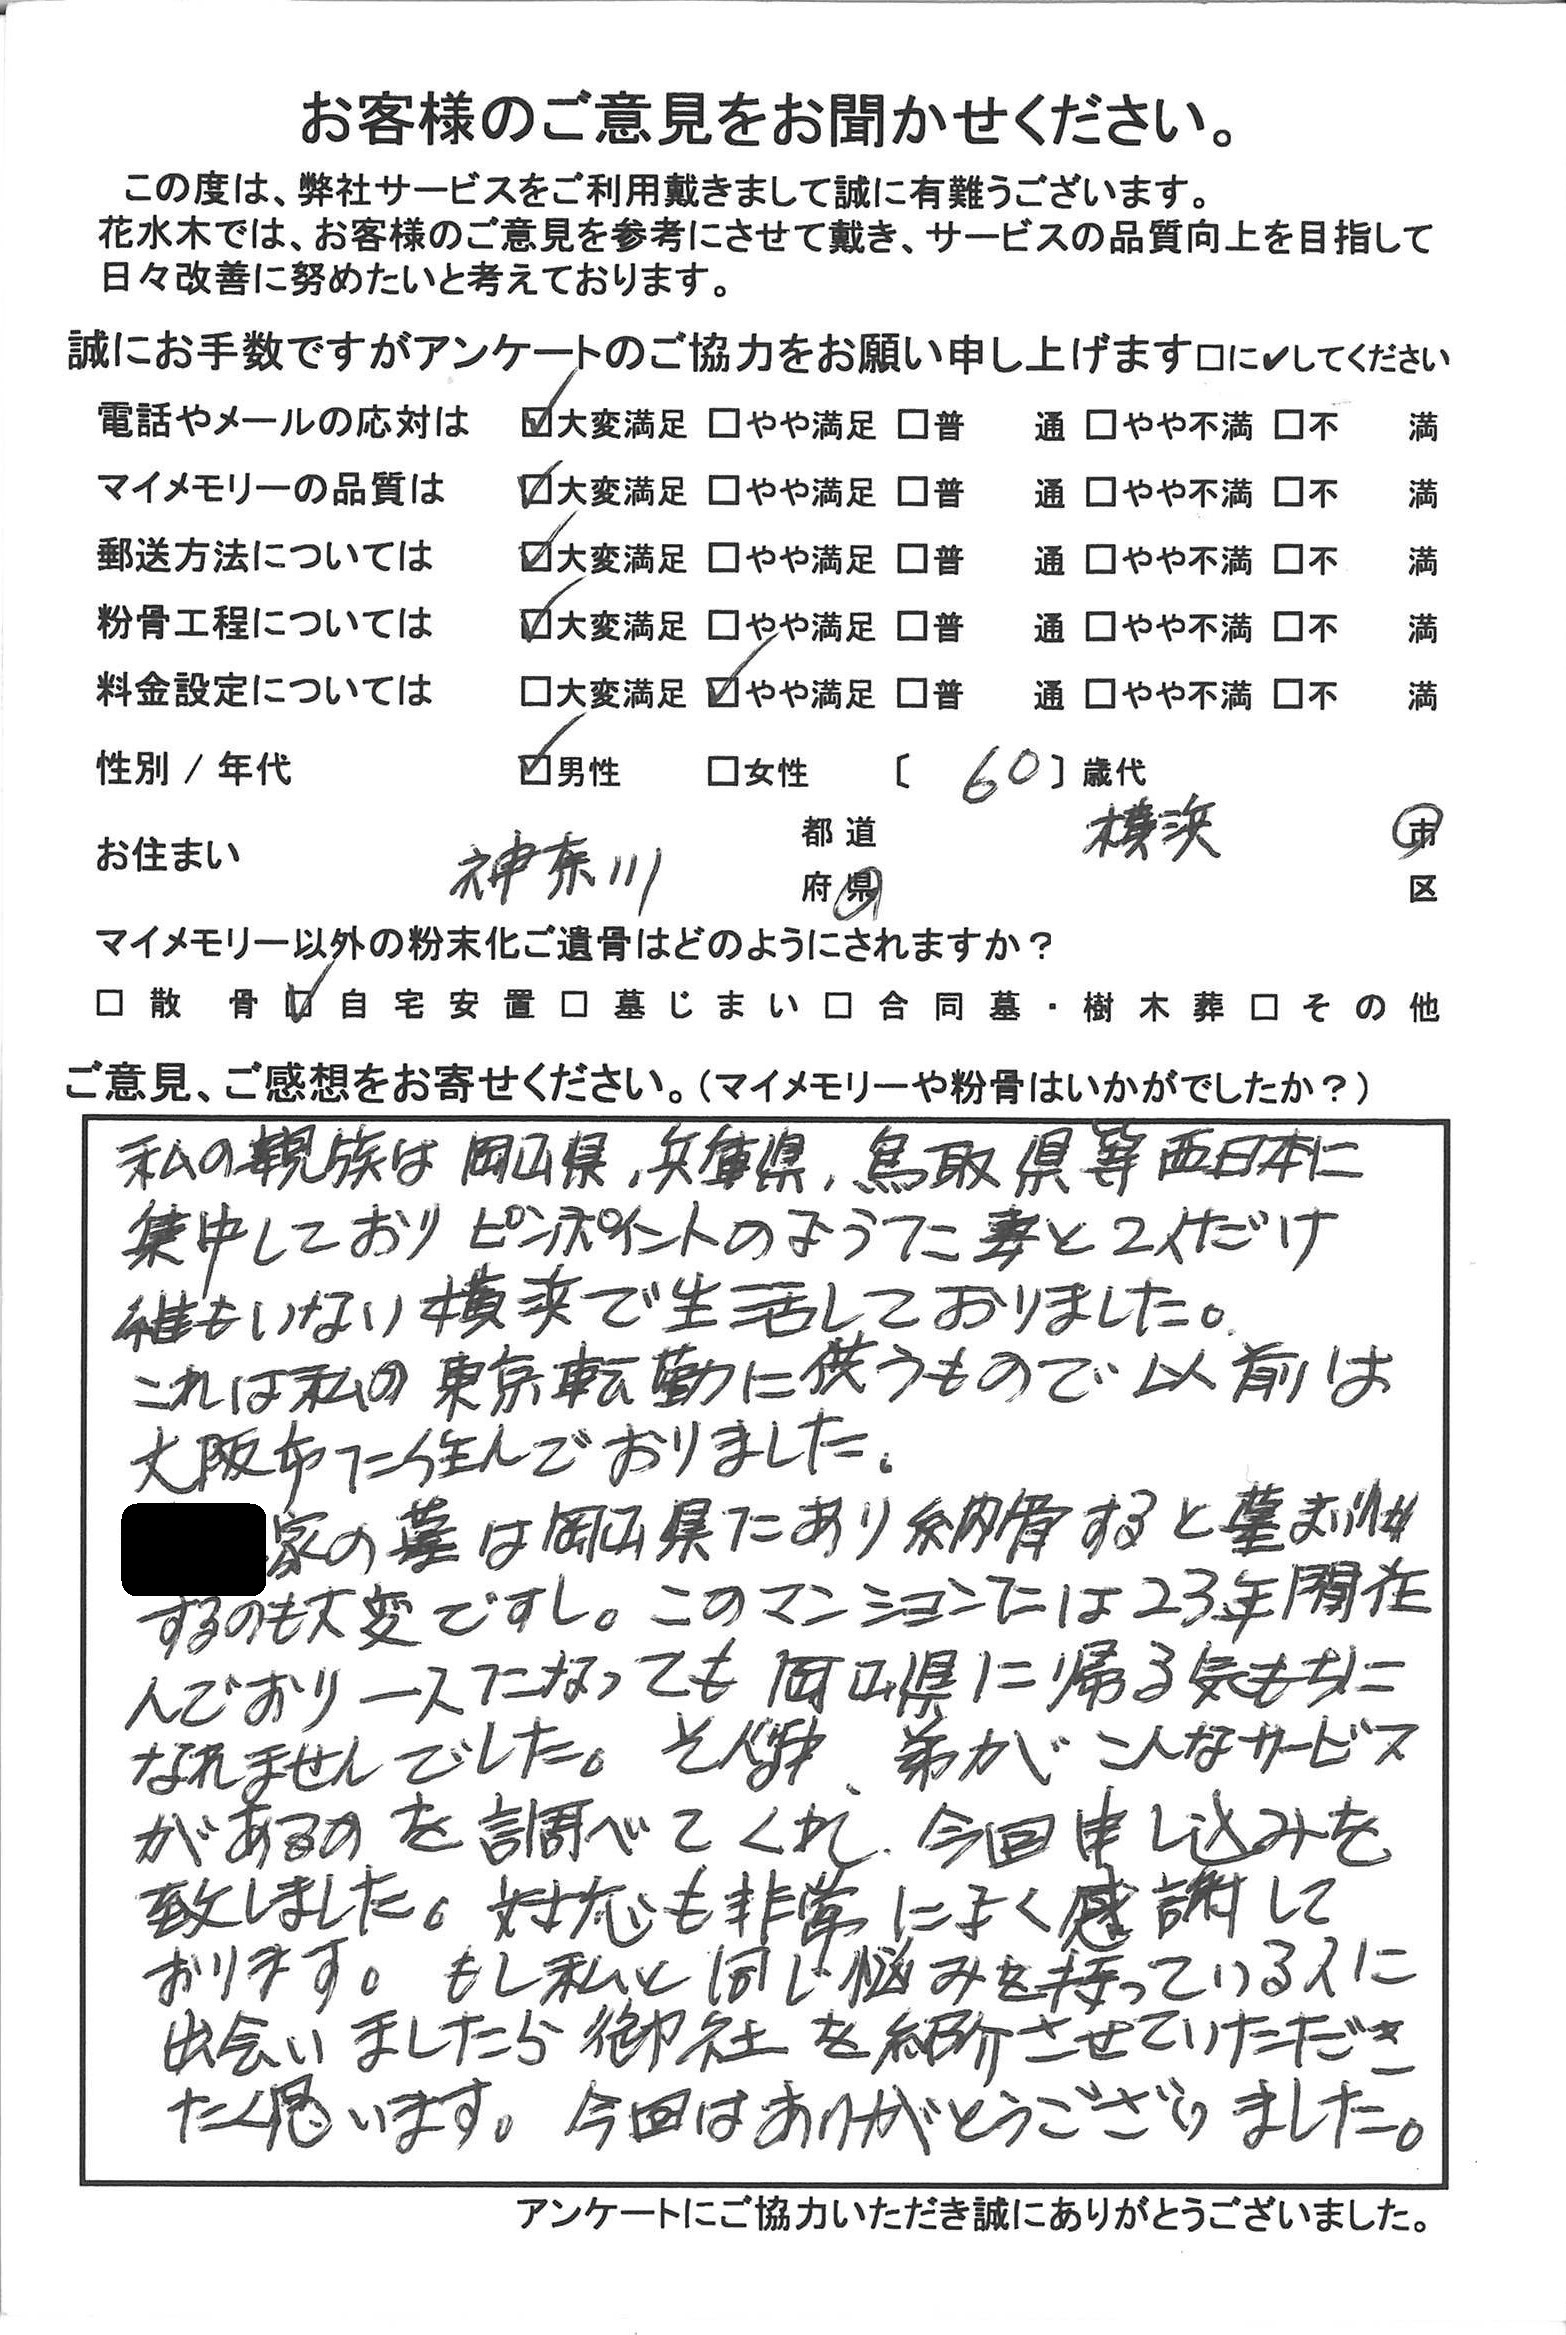 お客様のご意見をお聞かせください。
この度は、弊社サービスをご利用戴きまして誠に有難うございます。
花水木では、お客様のご意見を参考にさせて戴き、サービスの品質向上を目指して
日々改善に努めたいと考えております。
誠にお手数ですがアンケートのご協力をお願い申し上げます□に✔してください
電話やメールの応対は ☑大変満足 □やや満足 □普 通 □やや不満 □不 満
マイメモリーの品質は ☑大変満足 □やや満足 □普 通 □やや不満 □不 満
郵送方法については ☑大変満足 □やや満足 □普 通 □やや不満 □不 満
粉骨工程については ☑大変満足 □やや満足 □普 通 □やや不満 □不 満
料金設定については □大変満足 ☑やや満足 □普 通 □やや不満 □不 満
性別 / 年代 ☑男性 □女性 〔 60 〕歳代
お住まい 神奈川 都道府県 横浜 市区
マイメモリー以外の粉末化ご遺骨はどのようにされますか？
□散 骨 ☑自宅安置 □墓じまい □合同墓・樹木葬 □その他
ご意見、ご感想をお寄せください。（マイメモリーや粉骨はいかがでしたか？）
私の親族は岡山県、兵庫県、鳥取県等西日本に
集中しておりピンポイントのように妻と2人だけ
誰もいない横浜で生活しておりました。
これは私の東京転勤に伴うもので以前は
大阪市に住んでおりました。
家の墓は岡山県にあり納骨すると墓まいり
するのも大変ですし。このマンションには23年間住
んでおり一人になっても岡山県に帰る気もちに
なれませんでした。そんな時、弟がこんなサービス
があるのを調べてくれ、今回申し込みを
致しました。対応も非常によく感謝して
おります。もし私と同じ悩みを持っている人に
出会いましたら御社を紹介させていただき
たく思います。今回はありがとうございました。
アンケートにご協力いただき誠にありがとうございました。